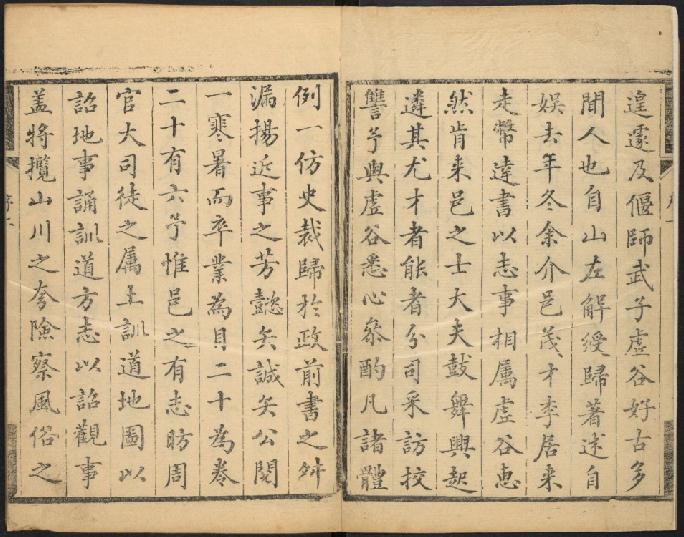 遑遽及偃師武子虛谷好古多
聞人也自山左解綬歸著述自
娛去年冬余介邑茂才李居来
走幣達書以志事相属虛谷恵
然肯来邑之士大夫鼓舞興起
遴其尤才者能者分司采訪挍
讐予與虛谷悉心叅酌凡諸體
例一仿史裁歸於政前書之舛
漏揚近事之芳懿矣誠矣公閱
一寒暑而卒業為目二十為卷
二十有六予惟邑之有志昉周
官大司徒之属土訓道地圖以
詔地事誦訓道方志以詔觀事
盖將攬山川之夸險察風俗之